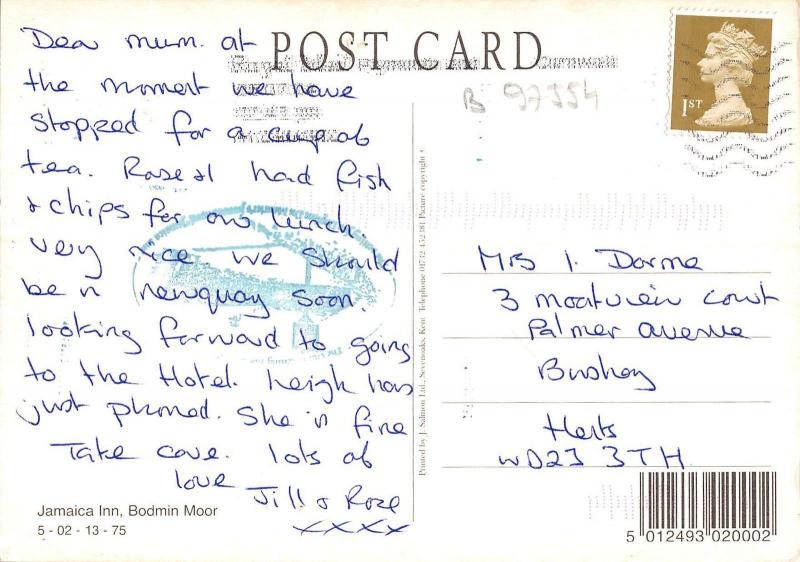 POST CARD
B 97554
1ST
Dear mum. at
the moment we have
stopped for a cup of
tea. Rose & I had fish
& chips for our lunch.
very nice we should
be in newquay soon.
looking forward to going
to the Hotel. Leigh has
just phoned. She is fine
Take care. lots of
love Jill & Rose
xxxx
Jamaica Inn, Bodmin Moor
5 - 02 - 13 - 75
Printed by J. Salmon Ltd., Sevenoaks, Kent. Telephone 01732 452381 Picture copyright ©
Mrs I. Dorme
3 moatview court
Palmer avenue
Bushey
Herts
WD23 3TH
5 012493 020002